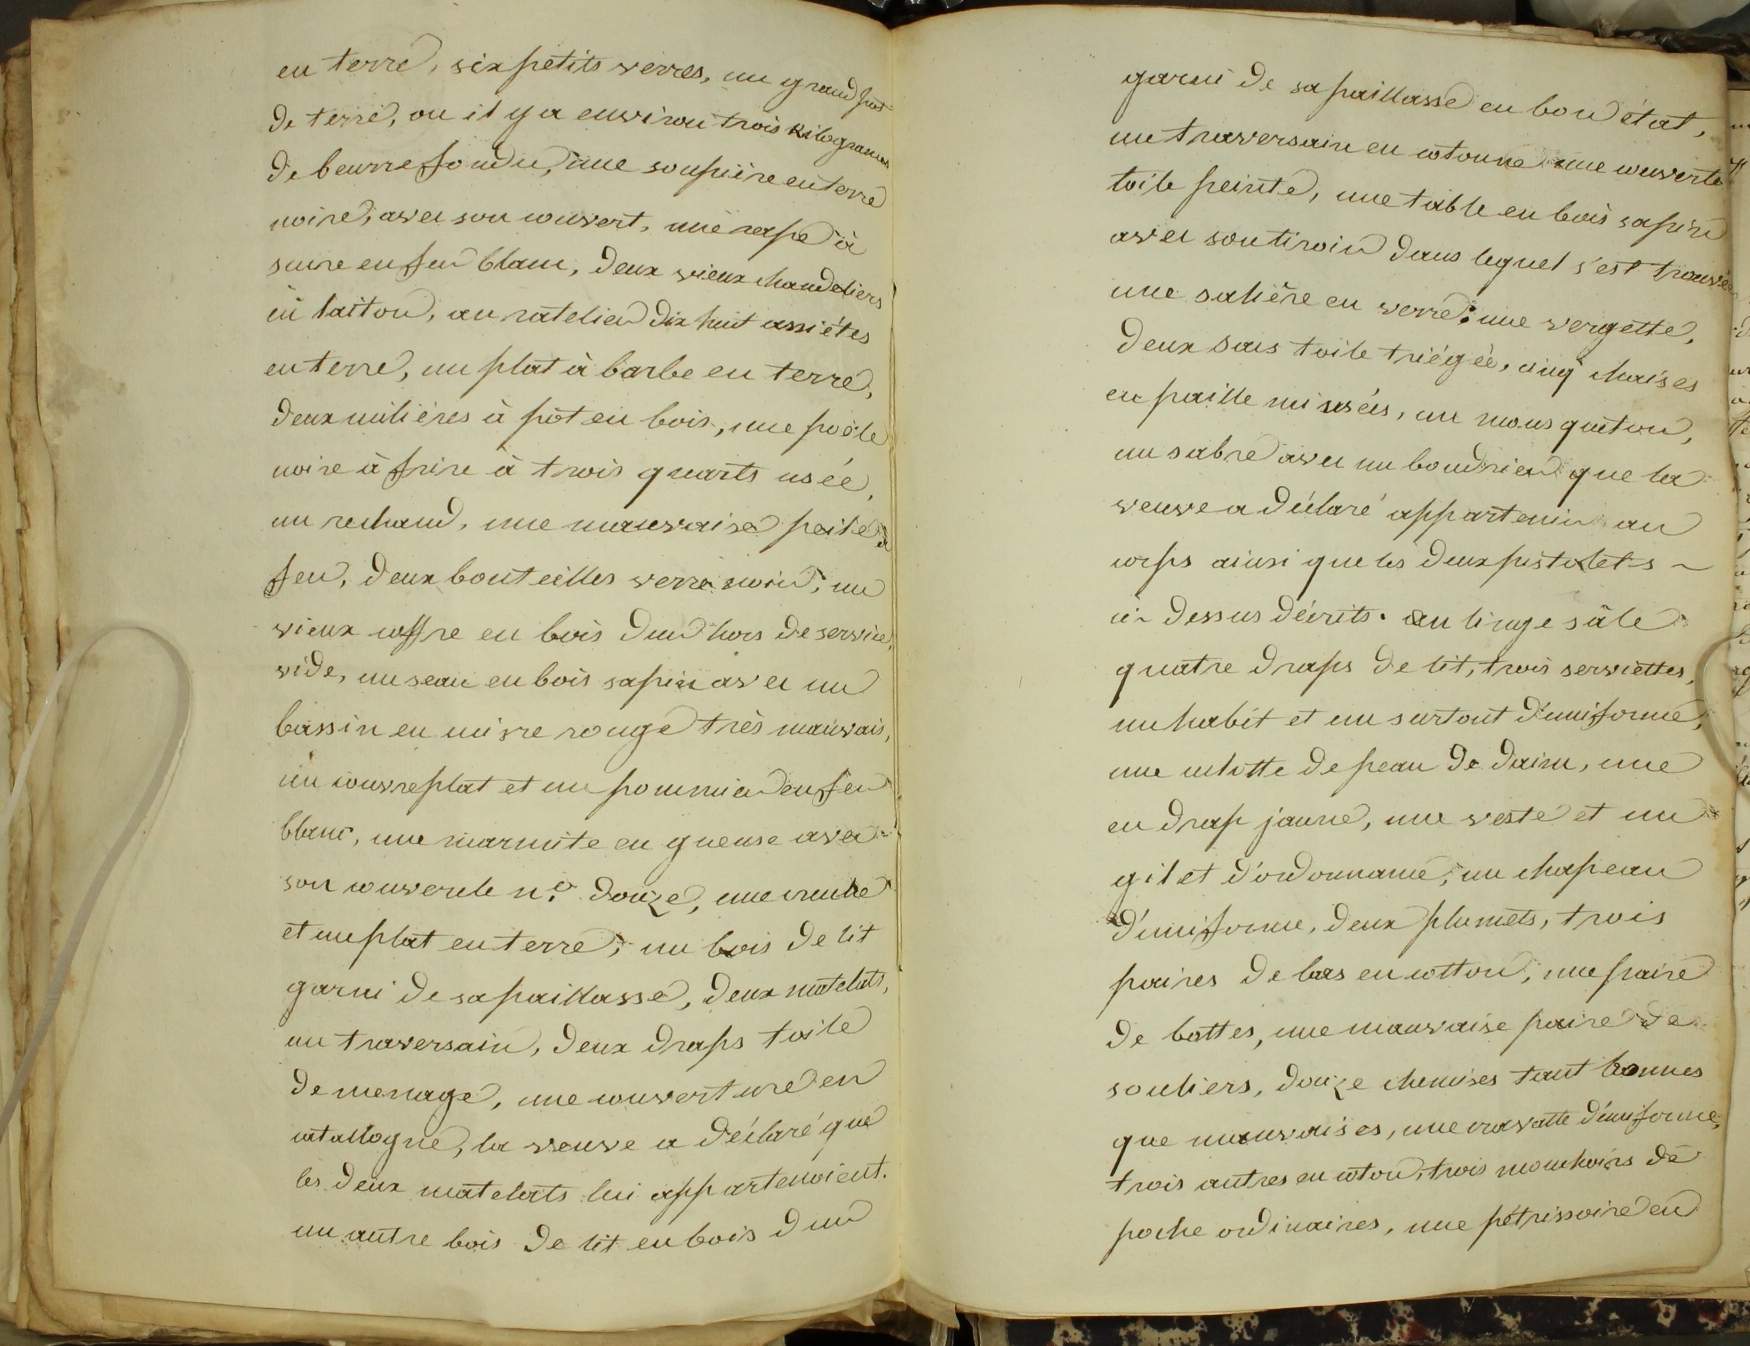 en terre, six petits verres, un grand pot
de terre, ou il y a environ trois kilogrammes
de beurre fondu, une soupière en terre
noire, avec son couvert, une rape à
sucre en fer blanc, deux vieux chandeliers
en laiton, au ratelier dix huit assiétes
en terre, un plat à barbe en terre,
deux cuilières à pot en bois, une poêle
noire à frire à trois quarts usée,
un rechaud, une mauvaise pêle à
feu, deux bouteilles verre noir, un
vieux coffre en bois dur hors de service,
vide, un seau en bois sapin avec un
bassin en cuivre rouge très mauvais,
un couvreplat et un pommier en fer
blanc, une marmite en gueuse avec
son couvercle n.º douze, une cruche
et un plat en terre, un bois de lit
garni de sa paillasse, deux matelats,
un traversain, deux draps toile
de menage, une couverture en
catallogne, la veuve a déclaré que
les deux matelats lui appartenoient.
un autre bois de lit en bois dur
garni de sa paillasse en bon état,
un traversain en cotonne une couverte
toile peinte, une table en bois sapin
avec son tiroir dans lequel s'est trouvé
une salière en verre; une vergette,
deux sacs toile triégée, cinq chaises
en paille mi usées, un mousqueton,
un sabre avec un boudrier que la
veuve a déclaré appartenir au
corps ainsi que les deux pistolets ~
ci-dessus décrits. au linge sâle
quatre draps de lit, trois serviettes,
un habit et un surtout d'uniforme,
une culotte de peau de daim, une
en drap jaune, une veste et un
gilet d'ordonnance, un chapeau
d'uniforme, deux plumets, trois
paires de bas en cotton, une paire
de bottes, une mauvaise paire de
souliers, douze chemises tant bonnes
que mauvaises, une cravatte d'uniforme,
trois autres en coton, trois mouchoirs de
poche ordinaires, une pétrissoire en